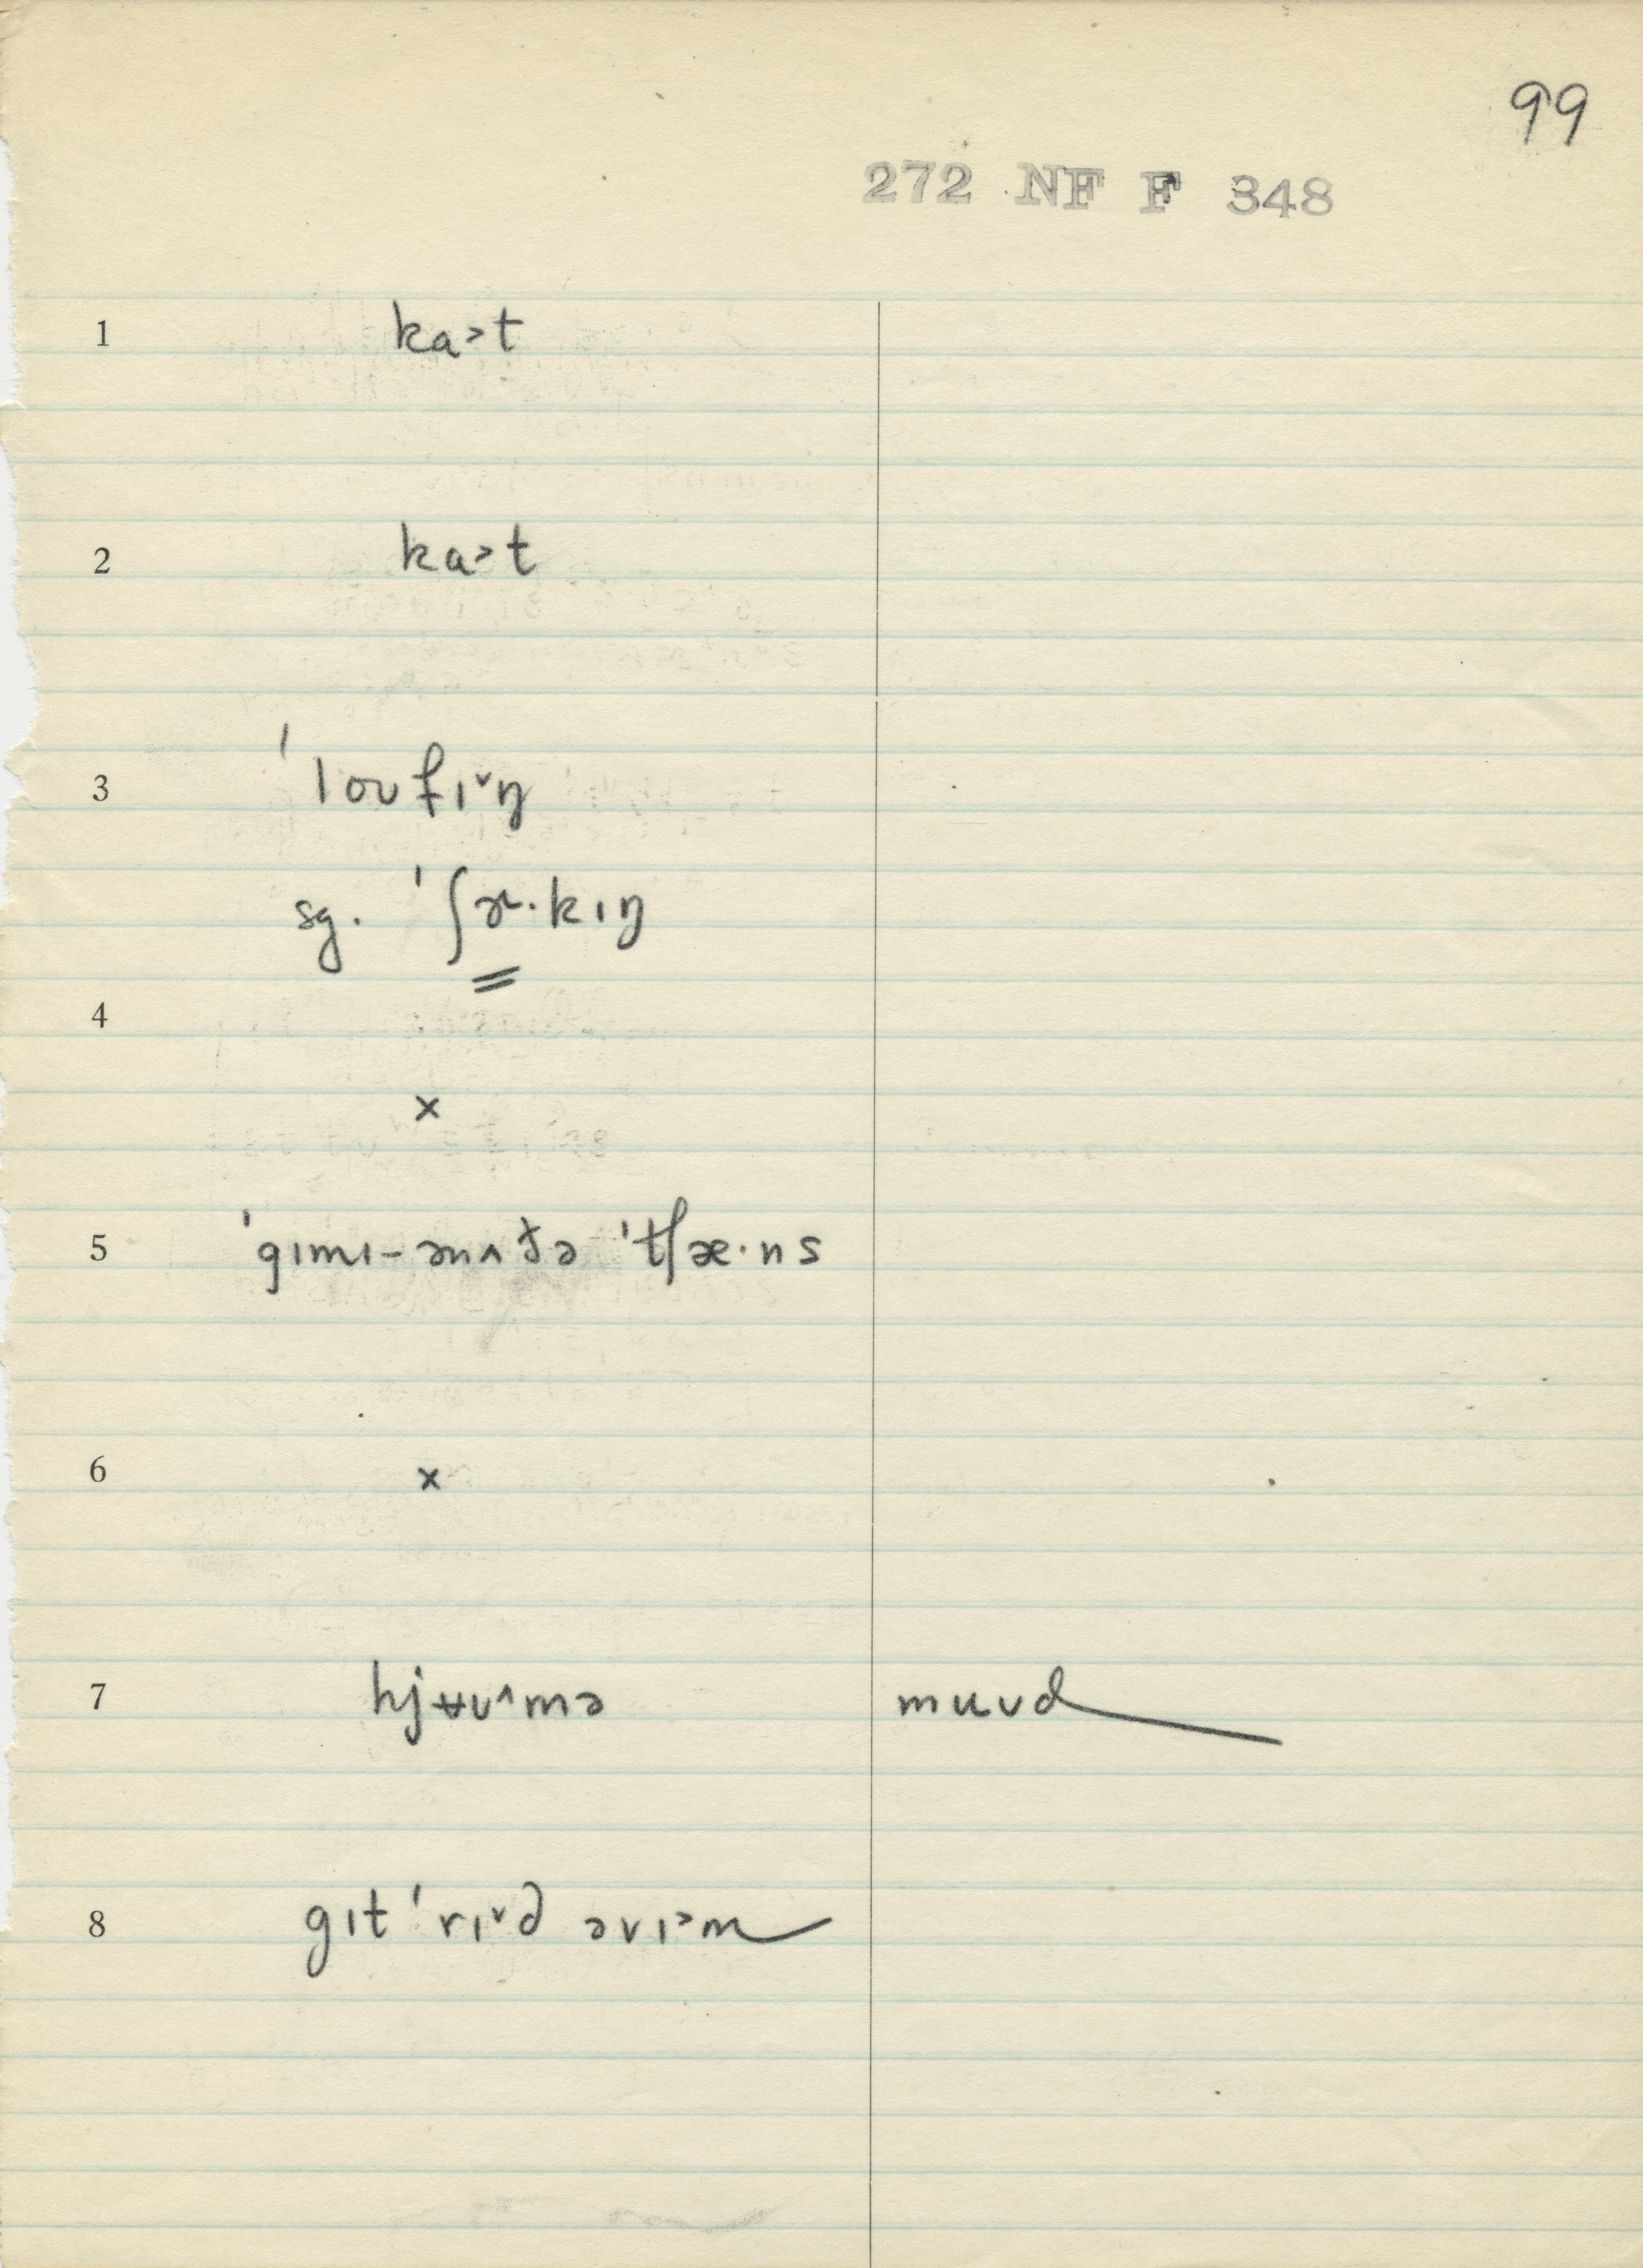 99
272 NF F 348
1 ka˃t
2 ka˃t
3 ˈloʊfɪ˅ŋ
sg. ˈʃɚ·kɪŋ
4
×
5 ˈgɪmɪ–ənʌðə ˈtʃæ·ns
6 ×
7 hjʉʊ˄mə muʊd
8 gɪtˈrɪ˅d əvɪ˃m